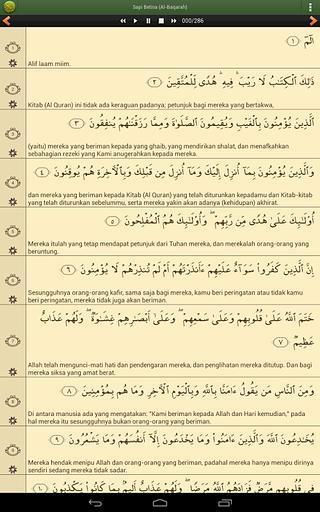 Sapi Betina (Al-Baqarah)
000/286
الٓمٓ ١
Alif laam miim.
ذَٰلِكَ ٱلْكِتَٰبُ لَا رَيْبَ ۛ فِيهِ ۛ هُدًى لِّلْمُتَّقِينَ ٢
Kitab (Al Quran) ini tidak ada keraguan padanya; petunjuk bagi mereka yang bertakwa,
ٱلَّذِينَ يُؤْمِنُونَ بِٱلْغَيْبِ وَيُقِيمُونَ ٱلصَّلَوٰةَ وَمِمَّا رَزَقْنَٰهُمْ يُنفِقُونَ ٣
(yaitu) mereka yang beriman kepada yang ghaib, yang mendirikan shalat, dan menafkahkan
sebahagian rezeki yang Kami anugerahkan kepada mereka.
وَٱلَّذِينَ يُؤْمِنُونَ بِمَآ أُنزِلَ إِلَيْكَ وَمَآ أُنزِلَ مِن قَبْلِكَ وَبِٱلْءَاخِرَةِ هُمْ يُوقِنُونَ ٤
dan mereka yang beriman kepada Kitab (Al Quran) yang telah diturunkan kepadamu dan Kitab-kitab
yang telah diturunkan sebelummu, serta mereka yakin akan adanya (kehidupan) akhirat.
أُو۟لَٰٓئِكَ عَلَىٰ هُدًى مِّن رَّبِّهِمْ ۖ وَأُو۟لَٰٓئِكَ هُمُ ٱلْمُفْلِحُونَ ٥
Mereka itulah yang tetap mendapat petunjuk dari Tuhan mereka, dan merekalah orang-orang yang
beruntung.
إِنَّ ٱلَّذِينَ كَفَرُوا۟ سَوَآءٌ عَلَيْهِمْ ءَأَنذَرْتَهُمْ أَمْ لَمْ تُنذِرْهُمْ لَا يُؤْمِنُونَ ٦
Sesungguhnya orang-orang kafir, sama saja bagi mereka, kamu beri peringatan atau tidak kamu
beri peringatan, mereka tidak juga akan beriman.
خَتَمَ ٱللَّهُ عَلَىٰ قُلُوبِهِمْ وَعَلَىٰ سَمْعِهِمْ ۖ وَعَلَىٰٓ أَبْصَٰرِهِمْ غِشَٰوَةٌ ۖ وَلَهُمْ عَذَابٌ
عَظِيمٌ ٧
Allah telah mengunci-mati hati dan pendengaran mereka, dan penglihatan mereka ditutup. Dan bagi
mereka siksa yang amat berat.
وَمِنَ ٱلنَّاسِ مَن يَقُولُ ءَامَنَّا بِٱللَّهِ وَبِٱلْيَوْمِ ٱلْءَاخِرِ وَمَا هُم بِمُؤْمِنِينَ ٨
Di antara manusia ada yang mengatakan: "Kami beriman kepada Allah dan Hari kemudian," pada
hal mereka itu sesungguhnya bukan orang-orang yang beriman.
يُخَٰدِعُونَ ٱللَّهَ وَٱلَّذِينَ ءَامَنُوا۟ وَمَا يَخْدَعُونَ إِلَّآ أَنفُسَهُمْ وَمَا يَشْعُرُونَ ٩
Mereka hendak menipu Allah dan orang-orang yang beriman, padahal mereka hanya menipu dirinya
sendiri sedang mereka tidak sadar.
فِى قُلُوبِهِم مَّرَضٌ فَزَادَهُمُ ٱللَّهُ مَرَضًا ۖ وَلَهُمْ عَذَابٌ أَلِيمٌۢ بِمَا كَانُوا۟ يَكْذِبُونَ ١٠